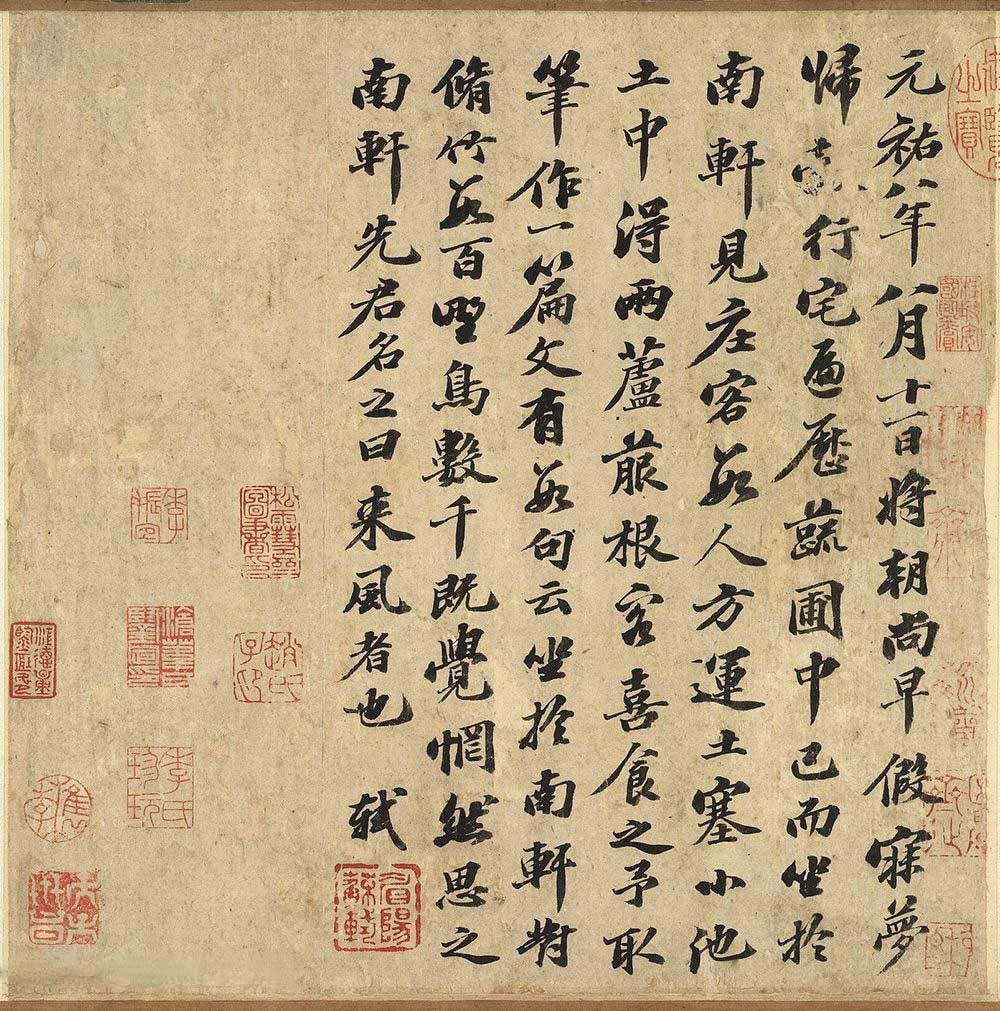 元祐八年八月十一日將朝尚早假寐夢
歸行宅遍歷蔬圃中已而坐於
南軒見庄客數人方運土塞小池
土中得兩蘆菔根客喜食之予取
筆作一篇文有數句云坐於南軒對
脩竹數百野鳥數千既覺惘然思之
南軒先君名之曰来風者也 軾
眉陽蘇軾
松雪齋圖書印